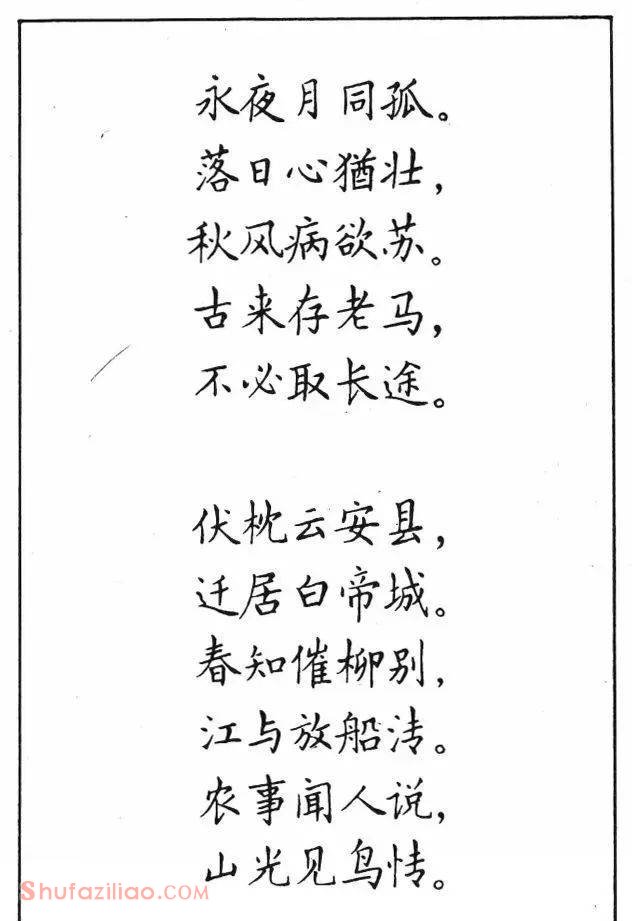 永夜月同孤。
落日心犹壮，
秋风病欲苏。
古来存老马，
不必取长途。
伏枕云安县，
迁居白帝城。
春知催柳别，
江与放船清。
农事闻人说，
山光见鸟情。
Shufaziliao.COM